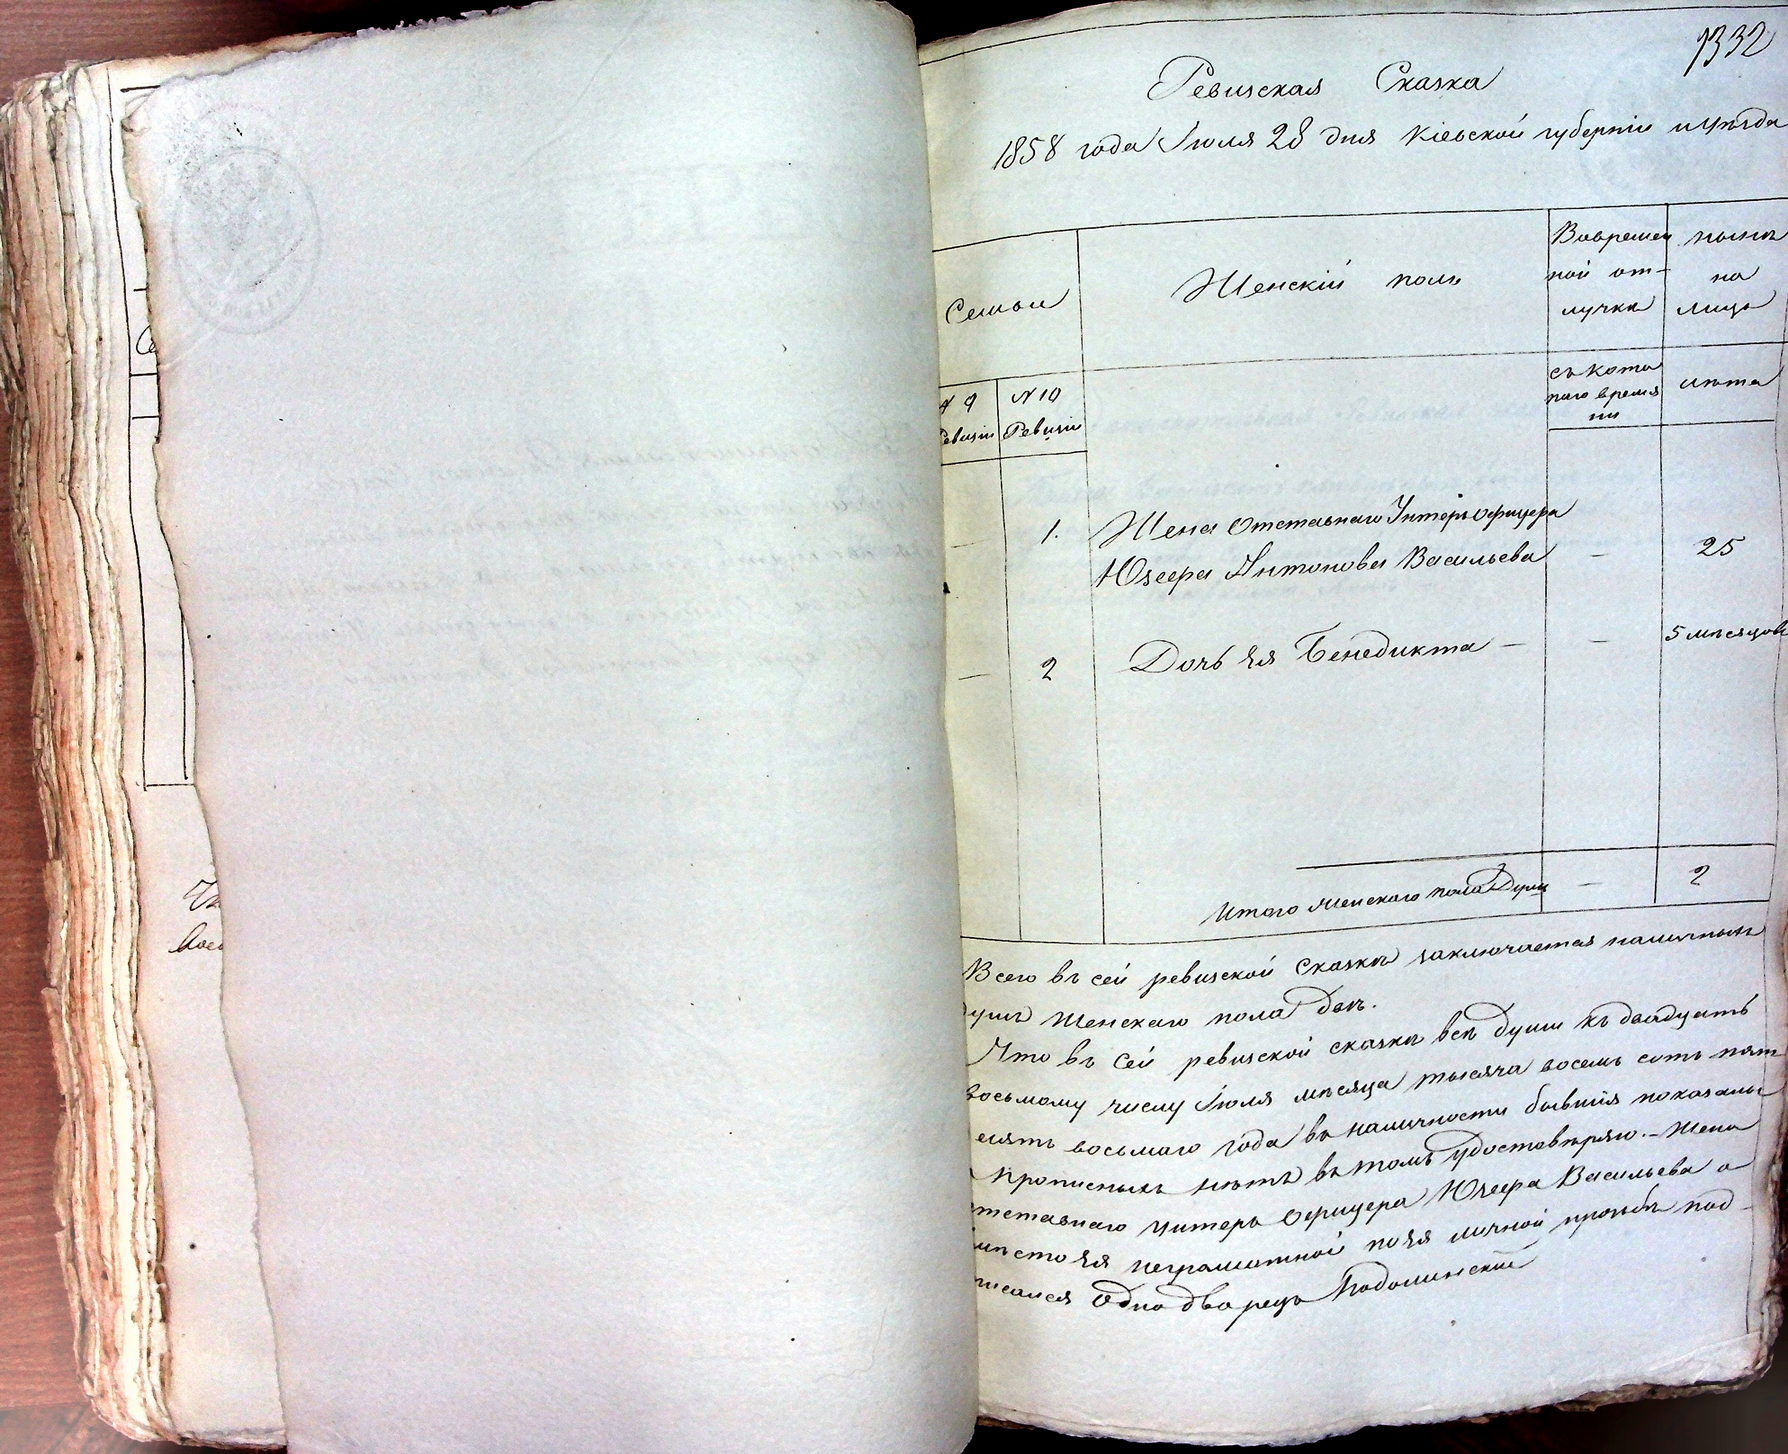 1332
Ревизская Сказка
1858 года Іюля 28 дня Кіевской губерніи и уѣзда
Семьи
Женскій полъ
Вовремен
ной от-
лучки
нынѣ
на
лицо
№ 9
Ревизіи
№ 10
Ревизіи
съ кото
раго време
ни
лѣта
— 1. Жена Отставнаго Унтеръ офицера
Юзефа Антонова Васильева — 25
— 2 Дочь Ея Бенедикта — — 5 мѣсяцовъ
Итого женскаго пола душъ — 2
Всего въ сей ревизской Сказкѣ заключается наличныхъ
душъ женскаго пола двѣ.
Что въ Сей ревизской сказкѣ всѣ души къ двадцать
восьмому числу Іюля мѣсяца тысяча восемь сотъ пять
десятъ восьмаго года въ наличности бывшія показаны
прописныхъ нѣтъ въ томъ удостовѣряю. — Жена
отставнаго унтеръ Офицера Юзефа Васильева а
вмѣсто Ея неграмотной по Ея личной прозьбѣ под-
писался Однодворецъ Подолинскій